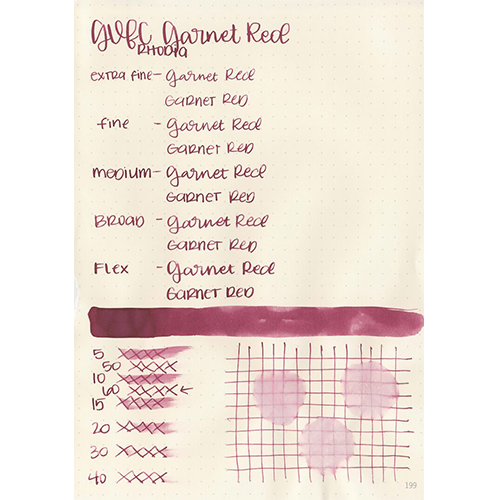 GVFC Garnet Red
RHODIA
EXTRA FINE - Garnet Red
GARNET RED
fine - Garnet Red
GARNET RED
MEDIUM - Garnet Red
GARNET RED
BROAD - Garnet Red
GARNET RED
FLEX - Garnet Red
GARNET RED
5 XXXX
50 XXXX
10 XXXX
60 XXXX ←
15 XXXX
20 XXXX
30 XXXX
40 XXXX
199